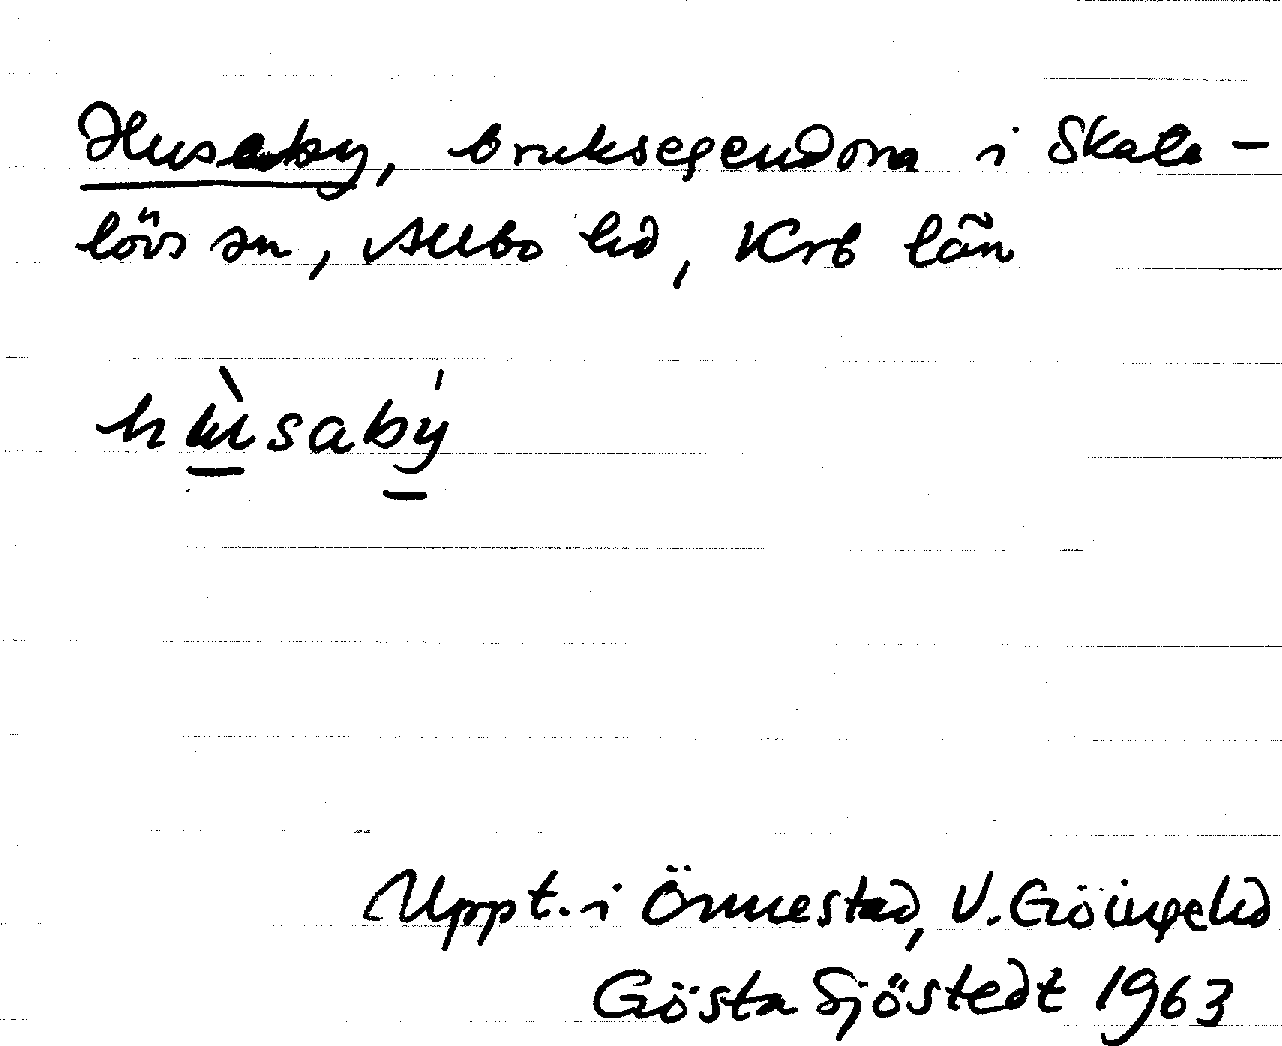 Husaby, bruksegendom i Skate-
lövs sn, Allbo hd, Krb län
hùsabý
Uppt. i Önnestad, V. Göingehd
Gösta Sjöstedt 1963